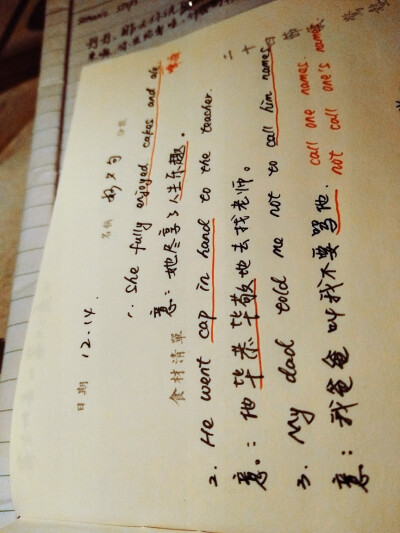 日期 12.14.
1. She fully enjoyed cakes and ale.
意:她尽享了人生乐趣。
食材清單
2. He went cap in hand to the teacher.
意:他毕恭毕敬地去找老师。
3. My dad told me not to call him names.
call one names.
意:我爸爸叫我不要骂他.
not call one's names.